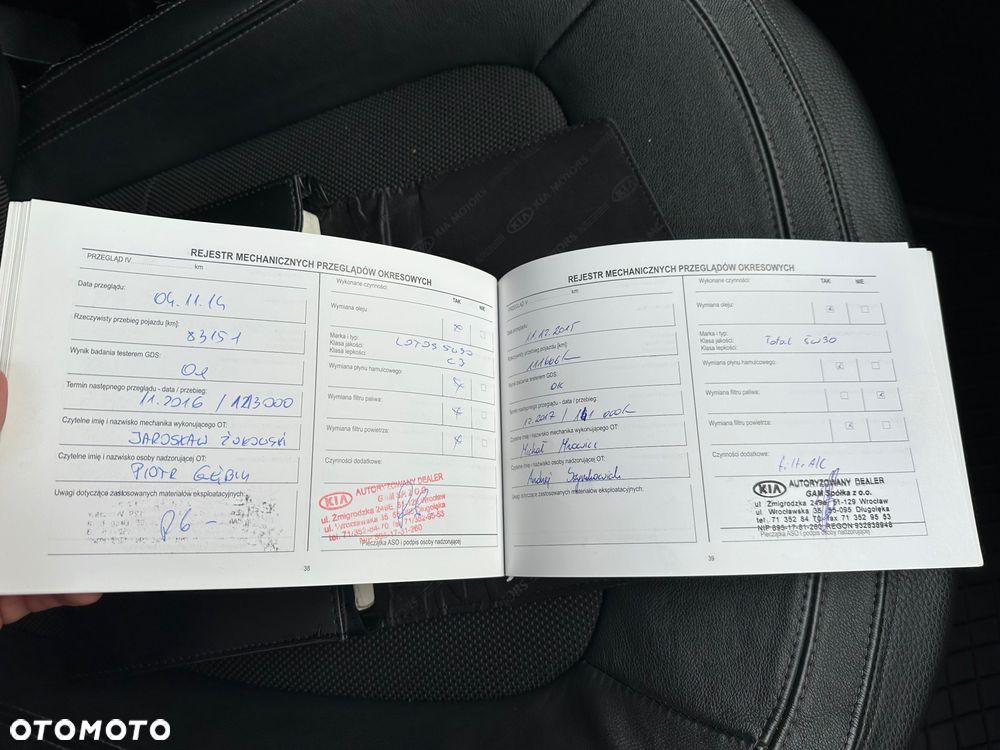 KIA MOTORS
REJESTR MECHANICZNYCH PRZEGLĄDÓW OKRESOWYCH
PRZEGLĄD IV km
Data przeglądu:
04.11.14
Rzeczywisty przebieg pojazdu [km]:
83151
Wynik badania testerem GDS:
Termin następnego przeglądu - data / przebieg:
11.2016 / 113000
Czytelne imię i nazwisko mechanika wykonującego OT:
JAROSŁAW
Czytelne imię i nazwisko osoby nadzorującej OT:
PIOTR
Uwagi dotyczące zastosowanych materiałów eksploatacyjnych:
P6 -
Wykonane czynności: TAK NIE
Wymiana oleju:
Marka i typ:
Klasa jakości:
Klasa lepkości:
LOTOS 5W30
C3
Wymiana płynu hamulcowego:
Wymiana filtru paliwa:
Wymiana filtru powietrza:
Czynności dodatkowe:
KIA AUTORYZOWANY DEALER
ul. Żmigrodzka 249E, 51-129 Wrocław
ul. Wrocławska 35 55-095 Długołęka
tel. 71/352-84-70 fax 71/352-95-53
Pieczątka ASO i podpis osoby nadzorującej
38
REJESTR MECHANICZNYCH PRZEGLĄDÓW OKRESOWYCH
PRZEGLĄD V km
Data przeglądu:
11.12.2015
Rzeczywisty przebieg pojazdu [km]
Wynik badania testerem GDS:
OK
Termin następnego przeglądu - data / przebieg:
12.2017 /
Czytelne imię i nazwisko mechanika wykonującego OT:
Michał
Czytelne imię i nazwisko osoby nadzorującej OT:
Andrzej
Uwagi dotyczące zastosowanych materiałów eksploatacyjnych:
Wykonane czynności: TAK NIE
Wymiana oleju:
Marka i typ:
Klasa jakości:
Klasa lepkości:
Total 5W30
Wymiana płynu hamulcowego:
Wymiana filtru paliwa:
Wymiana filtru powietrza:
Czynności dodatkowe:
filtr A/C
KIA AUTORYZOWANY DEALER
GAM Spółka z o.o.
ul. Żmigrodzka 249e, 51-129 Wrocław
ul. Wrocławska 35 55-095 Długołęka
tel. 71 352 84 70 fax 71 352 95 53
NIP 895-17-81-260 REGON 932638948
Pieczątka ASO i podpis osoby nadzorującej
39
OTOMOTO